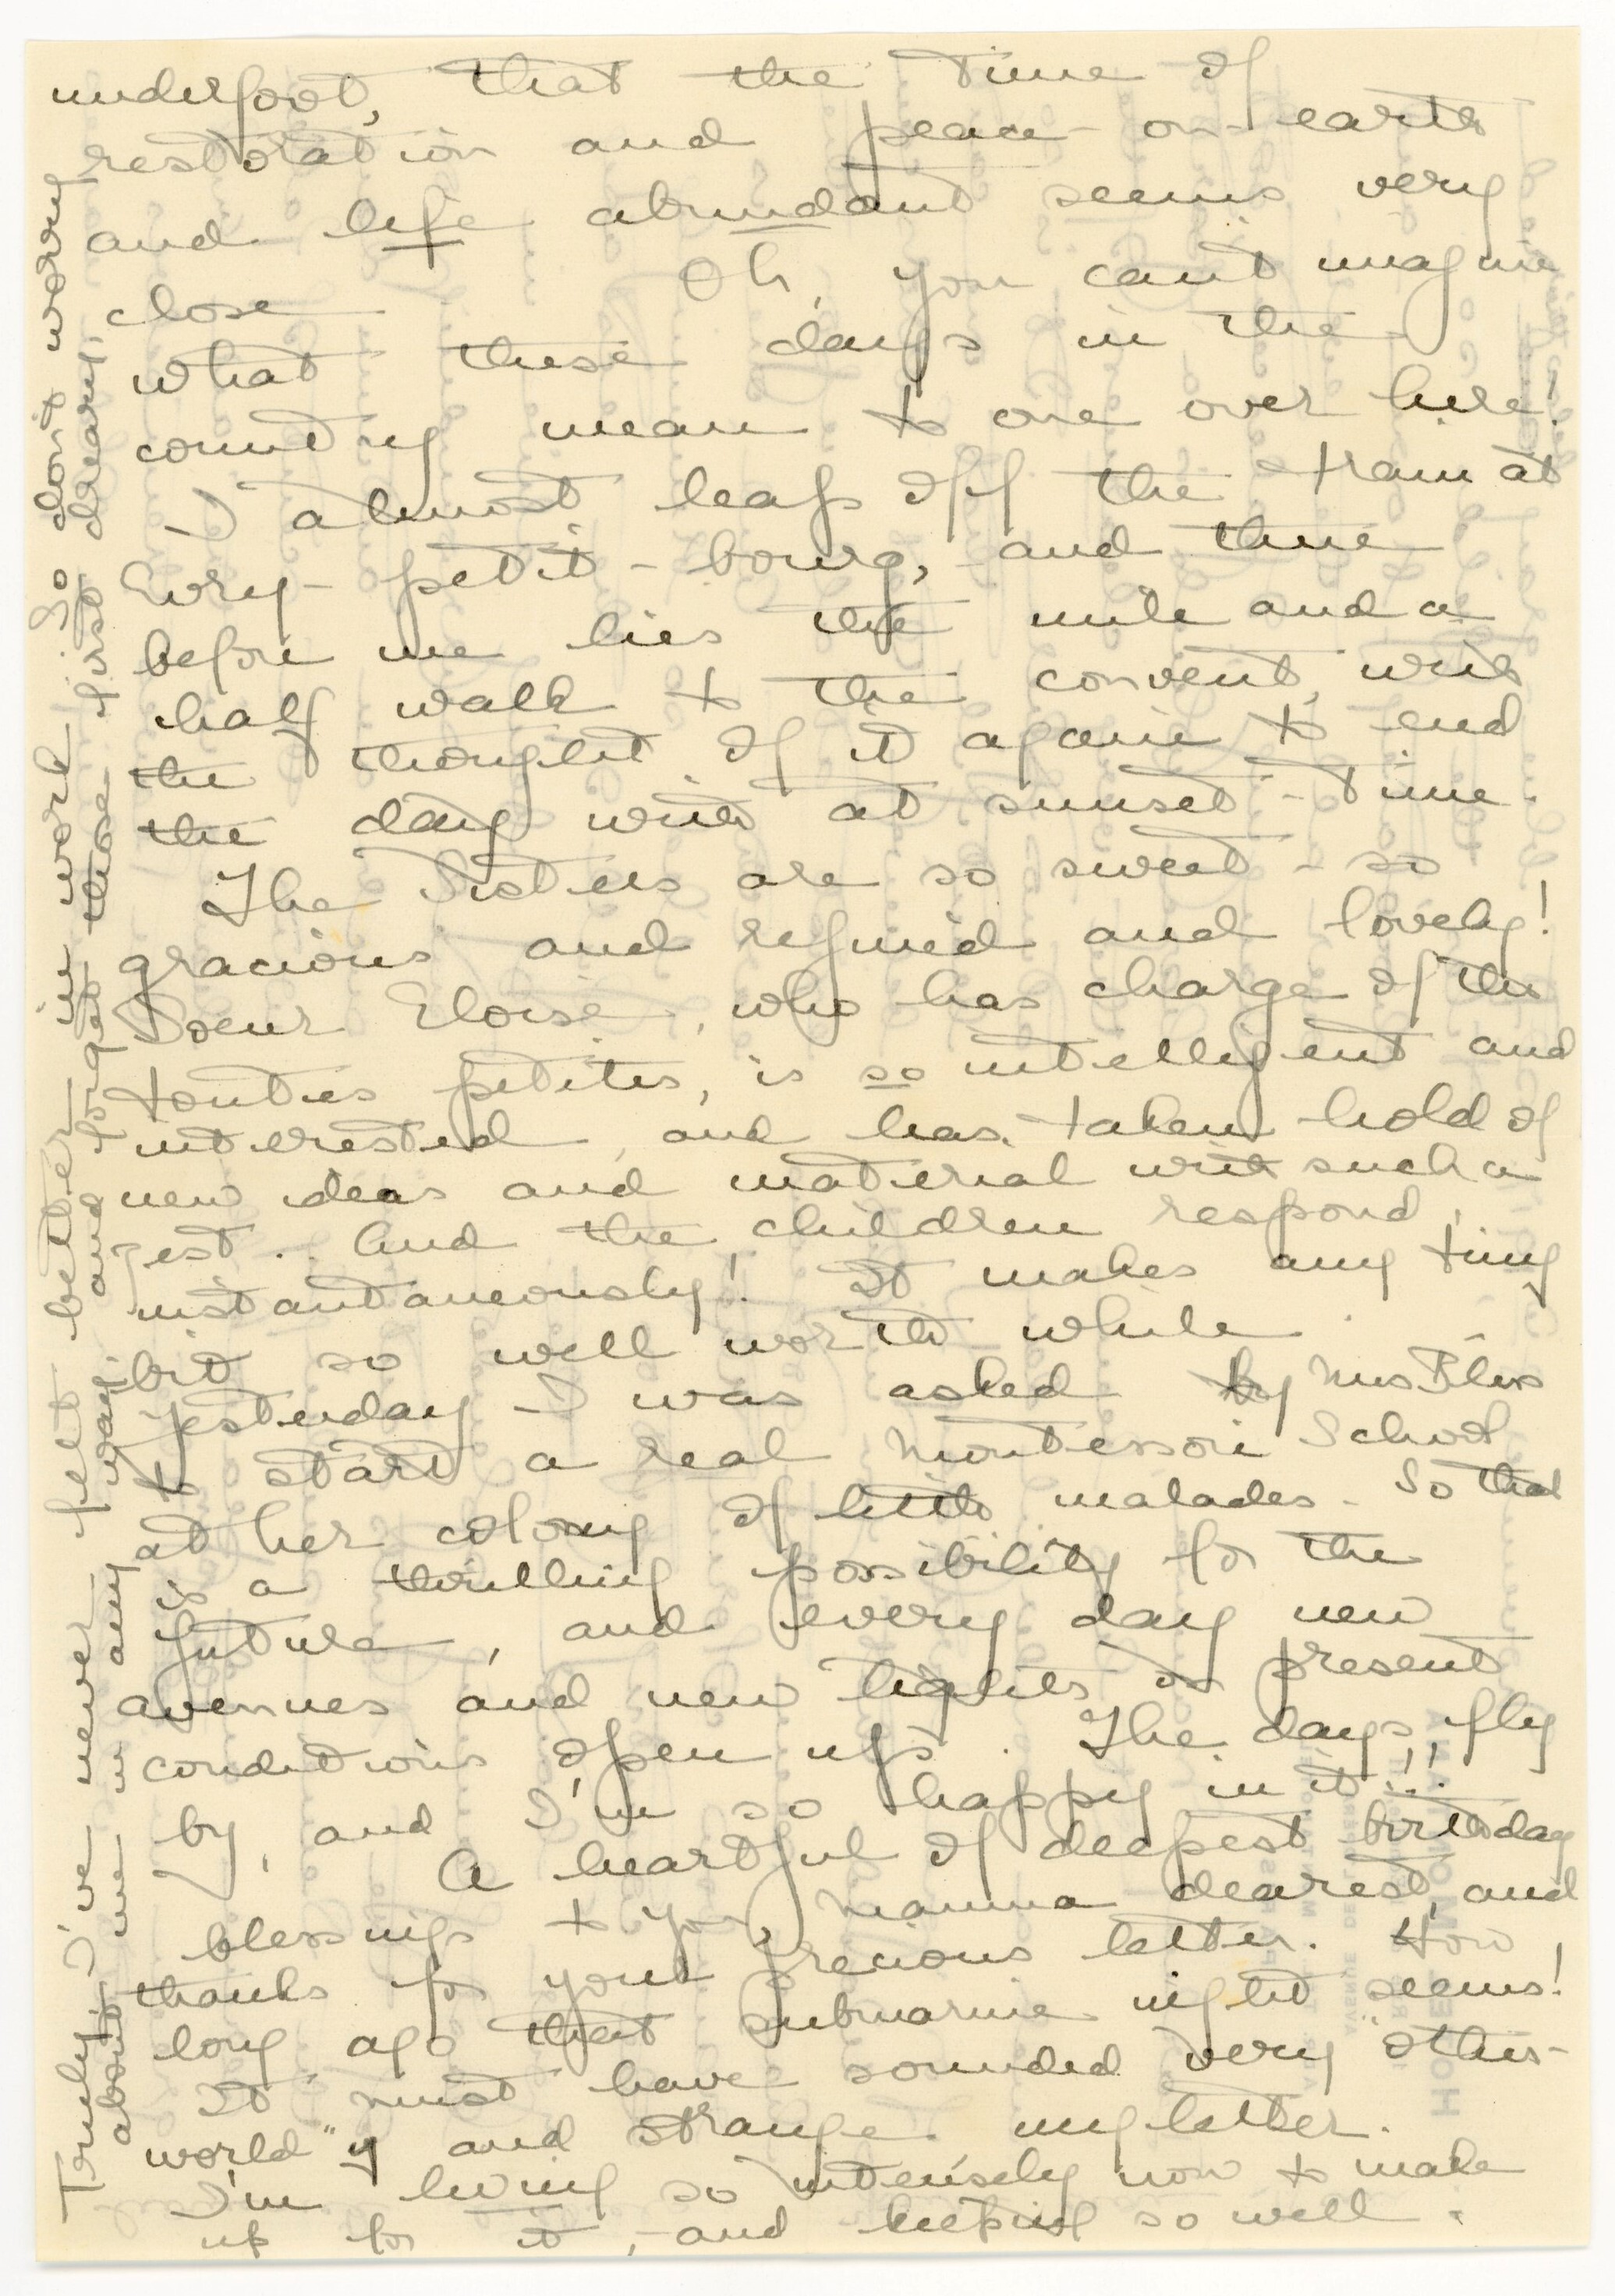 underfoot, that the time of
restoration and peace-on-earth
and life abundant seems very
close. Oh, you can't imagine
what these days in the
country mean to one over here!
I almost leap off the train at
Evry-petit-bourg, and there
before me lies the mile and a
half walk to the convent, with
the thought of it again to end
the day with at sunset-time.
The Sisters are so sweet - so
gracious and refined and lovely!
Soeur Eloise, who has charge of the
toutes petites, is so intelligent and
interested, and has taken hold of
new ideas and material with such a
zest.. And the children respond
instantaneously! It makes any tiny
bit so well worth while.
Yesterday I was asked by Mrs Bliss
to start a real Montessori School
at her colony of little malades. So that
is a thrilling possibility for the
future, and every day new
avenues and new lights on present
conditions open up. The days fly
by, and I'm so happy in it!!
A heartful of deepest birthday
blessings to you, Mamma dearest, and
thanks for your precious letter. How
long ago that submarine night seems!
It must have sounded very "other-
world"y and strange my letter.
I'm living so intensely now to make
up for it, and keeping so well.
Truly I've never felt better in work. So don't worry
about me in any way, and forget those first dreary,